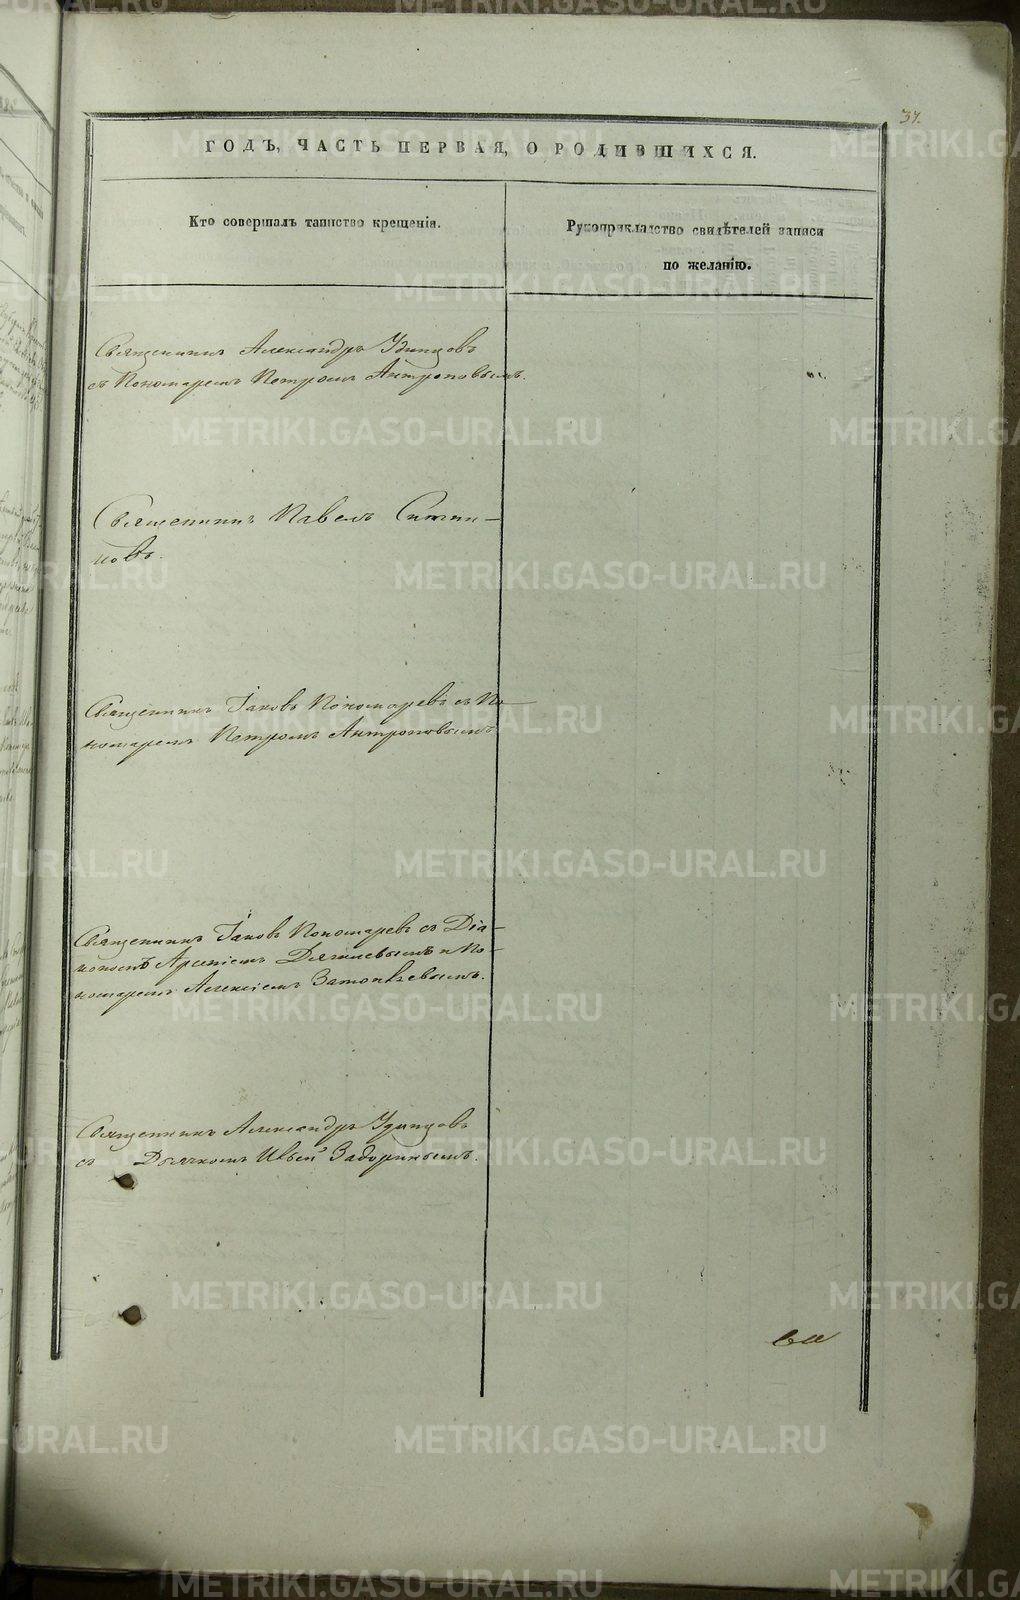 37.
ГОДЪ, ЧАСТЬ ПЕРВАЯ, О РОДИВШИХСЯ.
Кто совершалъ таинство крещенія.
Рукоприкладство свидѣтелей записи
по желанію.
Священникъ Александръ Удинцовъ
съ Пономаремъ Петромъ Антроповымъ.
Священникъ Павелъ Ситни-
ковъ.
Священникъ Іаковъ Пономаревъ съ По-
номаремъ Петромъ Антроповымъ
Священникъ Іаковъ Пономаревъ съ Діа-
кономъ Арсеніемъ Дягилевымъ и По-
номаремъ Алексіемъ
Священникъ Александръ Удинцовъ
съ Дьячкомъ Задоринымъ.
METRIKI.GASO-URAL.RU